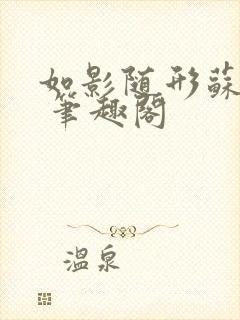 如影随形蘇
笔趣阁
温泉